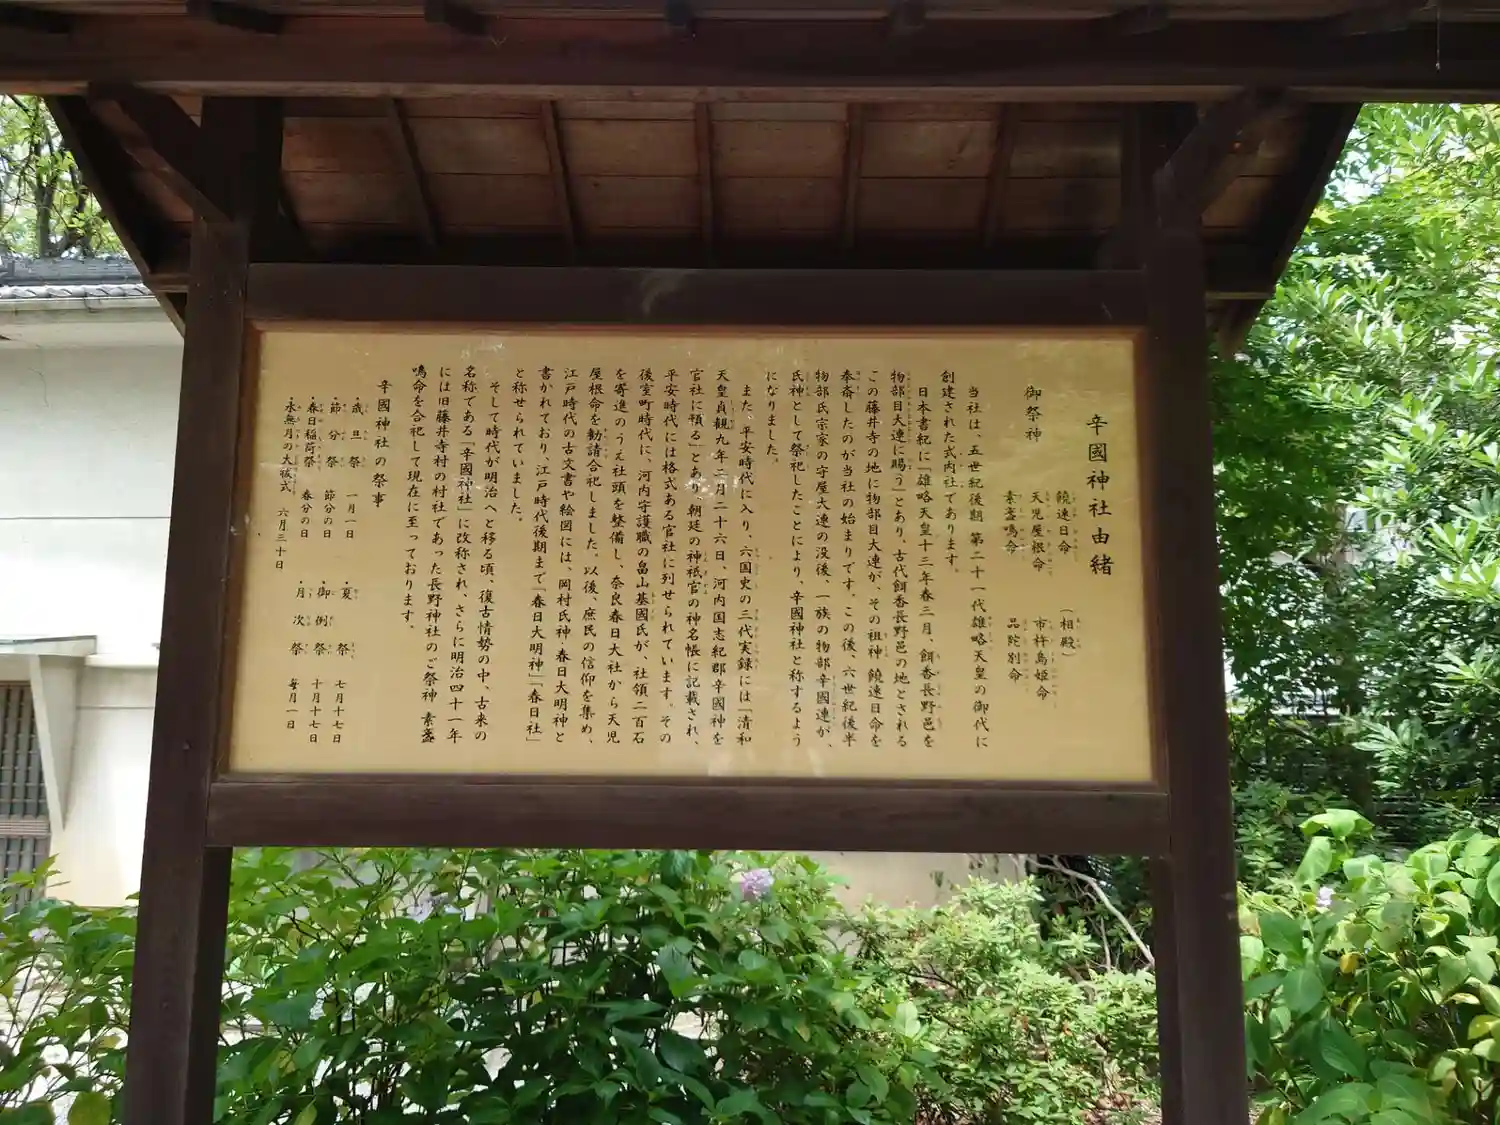 辛國神社由緒
御祭神
饒速日命 (相殿)
天児屋根命 市杵島姫命
素盞鳴命 品陀別命
当社は、五世紀後期 第二十一代雄略天皇の御代に
創建された式内社であります。
日本書紀に「雄略天皇十三年春三月、餌香長野邑を
物部目大連に賜う」とあり、古代餌香長野邑の地とされる
この藤井寺の地に物部目大連が、その祖神 饒速日命を
奉斎したのが当社の始まりです。この後、六世紀後半
物部氏宗家の守屋大連の没後、一族の物部辛國連が、
氏神として祭祀したことにより、辛國神社と称するよう
になりました。
また、平安時代に入り、六国史の三代実録には「清和
天皇貞観九年二月二十六日、河内国志紀郡辛國神を
官社に預る」とあり、朝廷の神祇官の神名帳に記載され、
平安時代には格式ある官社に列せられています。その
後室町時代に、河内守護職の畠山基國氏が、社領二百石
を寄進のうえ社頭を整備し、奈良春日大社から天児
屋根命を勧請合祀しました。以後、庶民の信仰を集め、
江戸時代の古文書や絵図には、岡村氏神・春日大明神と
書かれており、江戸時代後期まで「春日大明神」「春日社」
と称せられていました。
そして時代が明治へと移る頃、復古情勢の中、古来の
名称である「辛國神社」に改称され、さらに明治四十一年
には旧藤井寺村の村社であった長野神社のご祭神 素盞
鳴命を合祀して現在に至っております。
辛國神社の祭事
・歳旦祭 一月一日 ・夏祭 七月十七日
・節分祭 節分の日 ・御例祭 十月十七日
・春日稲荷祭 春分の日 ・月次祭 毎月一日
・水無月の大祓式 六月三十日